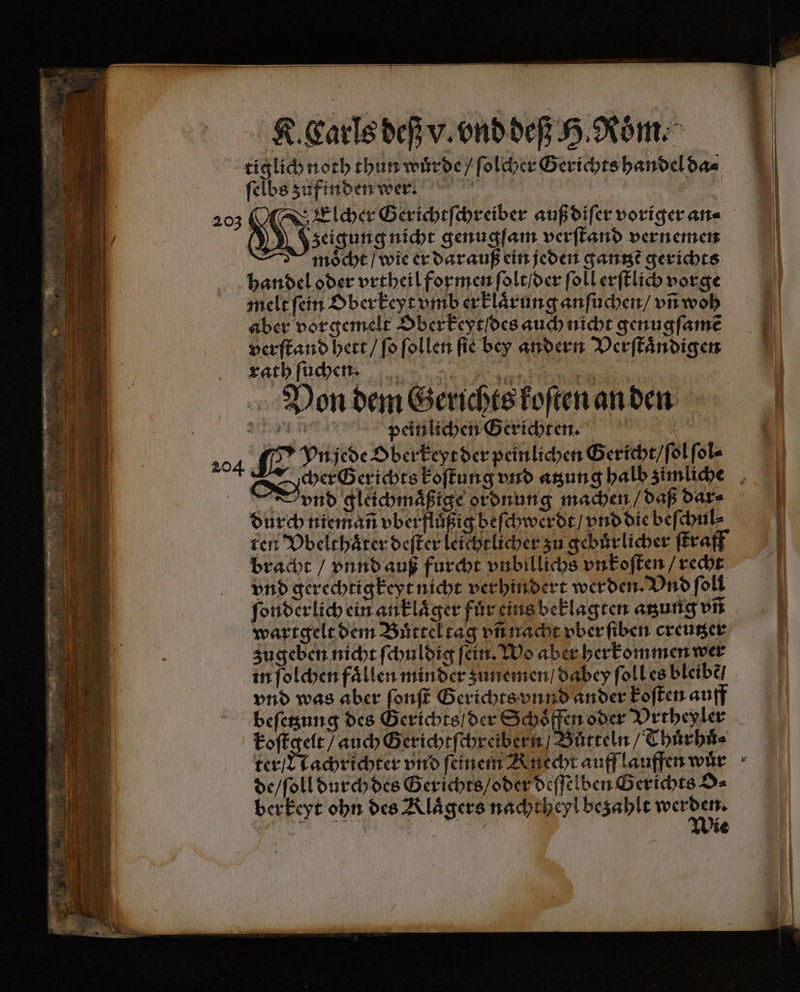 K. Carls deß v. vnd deß H. Röm.
tiglich noth thun wuͤrde / ſolcher Gerichts handel da⸗
ſelbs zufinden wer.
203 WElcher Gerichtſchreiber auß diſer voriger an⸗
zeigung nicht genugſam verſtand vernemen
moͤcht / wie er darauß ein jeden gantzẽ gerichts
handel oder vrtheil formen ſolt / der ſoll erſtlich vorge
melt ſein Oberkeyt vmb erklaͤrung anſuchen / vñ woh
aber vorgemelt Oberkeyt / des auch nicht genugſamẽ
verſtand hett / ſo ſollen ſie bey andern Verſtaͤndigen
rath ſuchen.
Von dem Gerichts koſten an den
peinlichen Gerichten.
204 Yn jede Oberkeyt der peinlichen Gericht / ſol ſol⸗
cher Gerichts koſtung vnd atzung halb zimliche
vnd gleichmaͤßige ordnung machen / daß dar⸗
durch niemañ vberfluͤßig beſchwerdt / vnd die beſchul⸗
ten Vbelthaͤter deſter leichtlicher zu gebuͤrlicher ſtraff
bracht / vnnd auß furcht vnbillichs vnkoſten / recht
vnd gerechtigkeyt nicht verhindert werden. Vnd ſoll
ſonderlich ein anklaͤger fuͤr eins beklagten atzung vñ
wartgelt dem Buͤttel tag vñ nacht vber ſiben creutzer
zugeben nicht ſchuldig ſein. Wo aber herkommen wer
in ſolchen faͤllen minder zunemen / dabey ſoll es bleibẽ /
vnd was aber ſonſt Gerichts vnnd ander koſten auff
beſetzung des Gerichts / der Schoͤffen oder Vrtheyler
koſtgelt / auch Gerichtſchreibern / Buͤtteln / Thuͤrhuͤ⸗
ter / Nachrichter vnd ſeinem Knecht auff lauffen wuͤr
de / ſoll durch des Gerichts / oder deſſelben Gerichts O⸗
berkeyt ohn des Klaͤgers nachtheyl bezahlt werden.
Wie